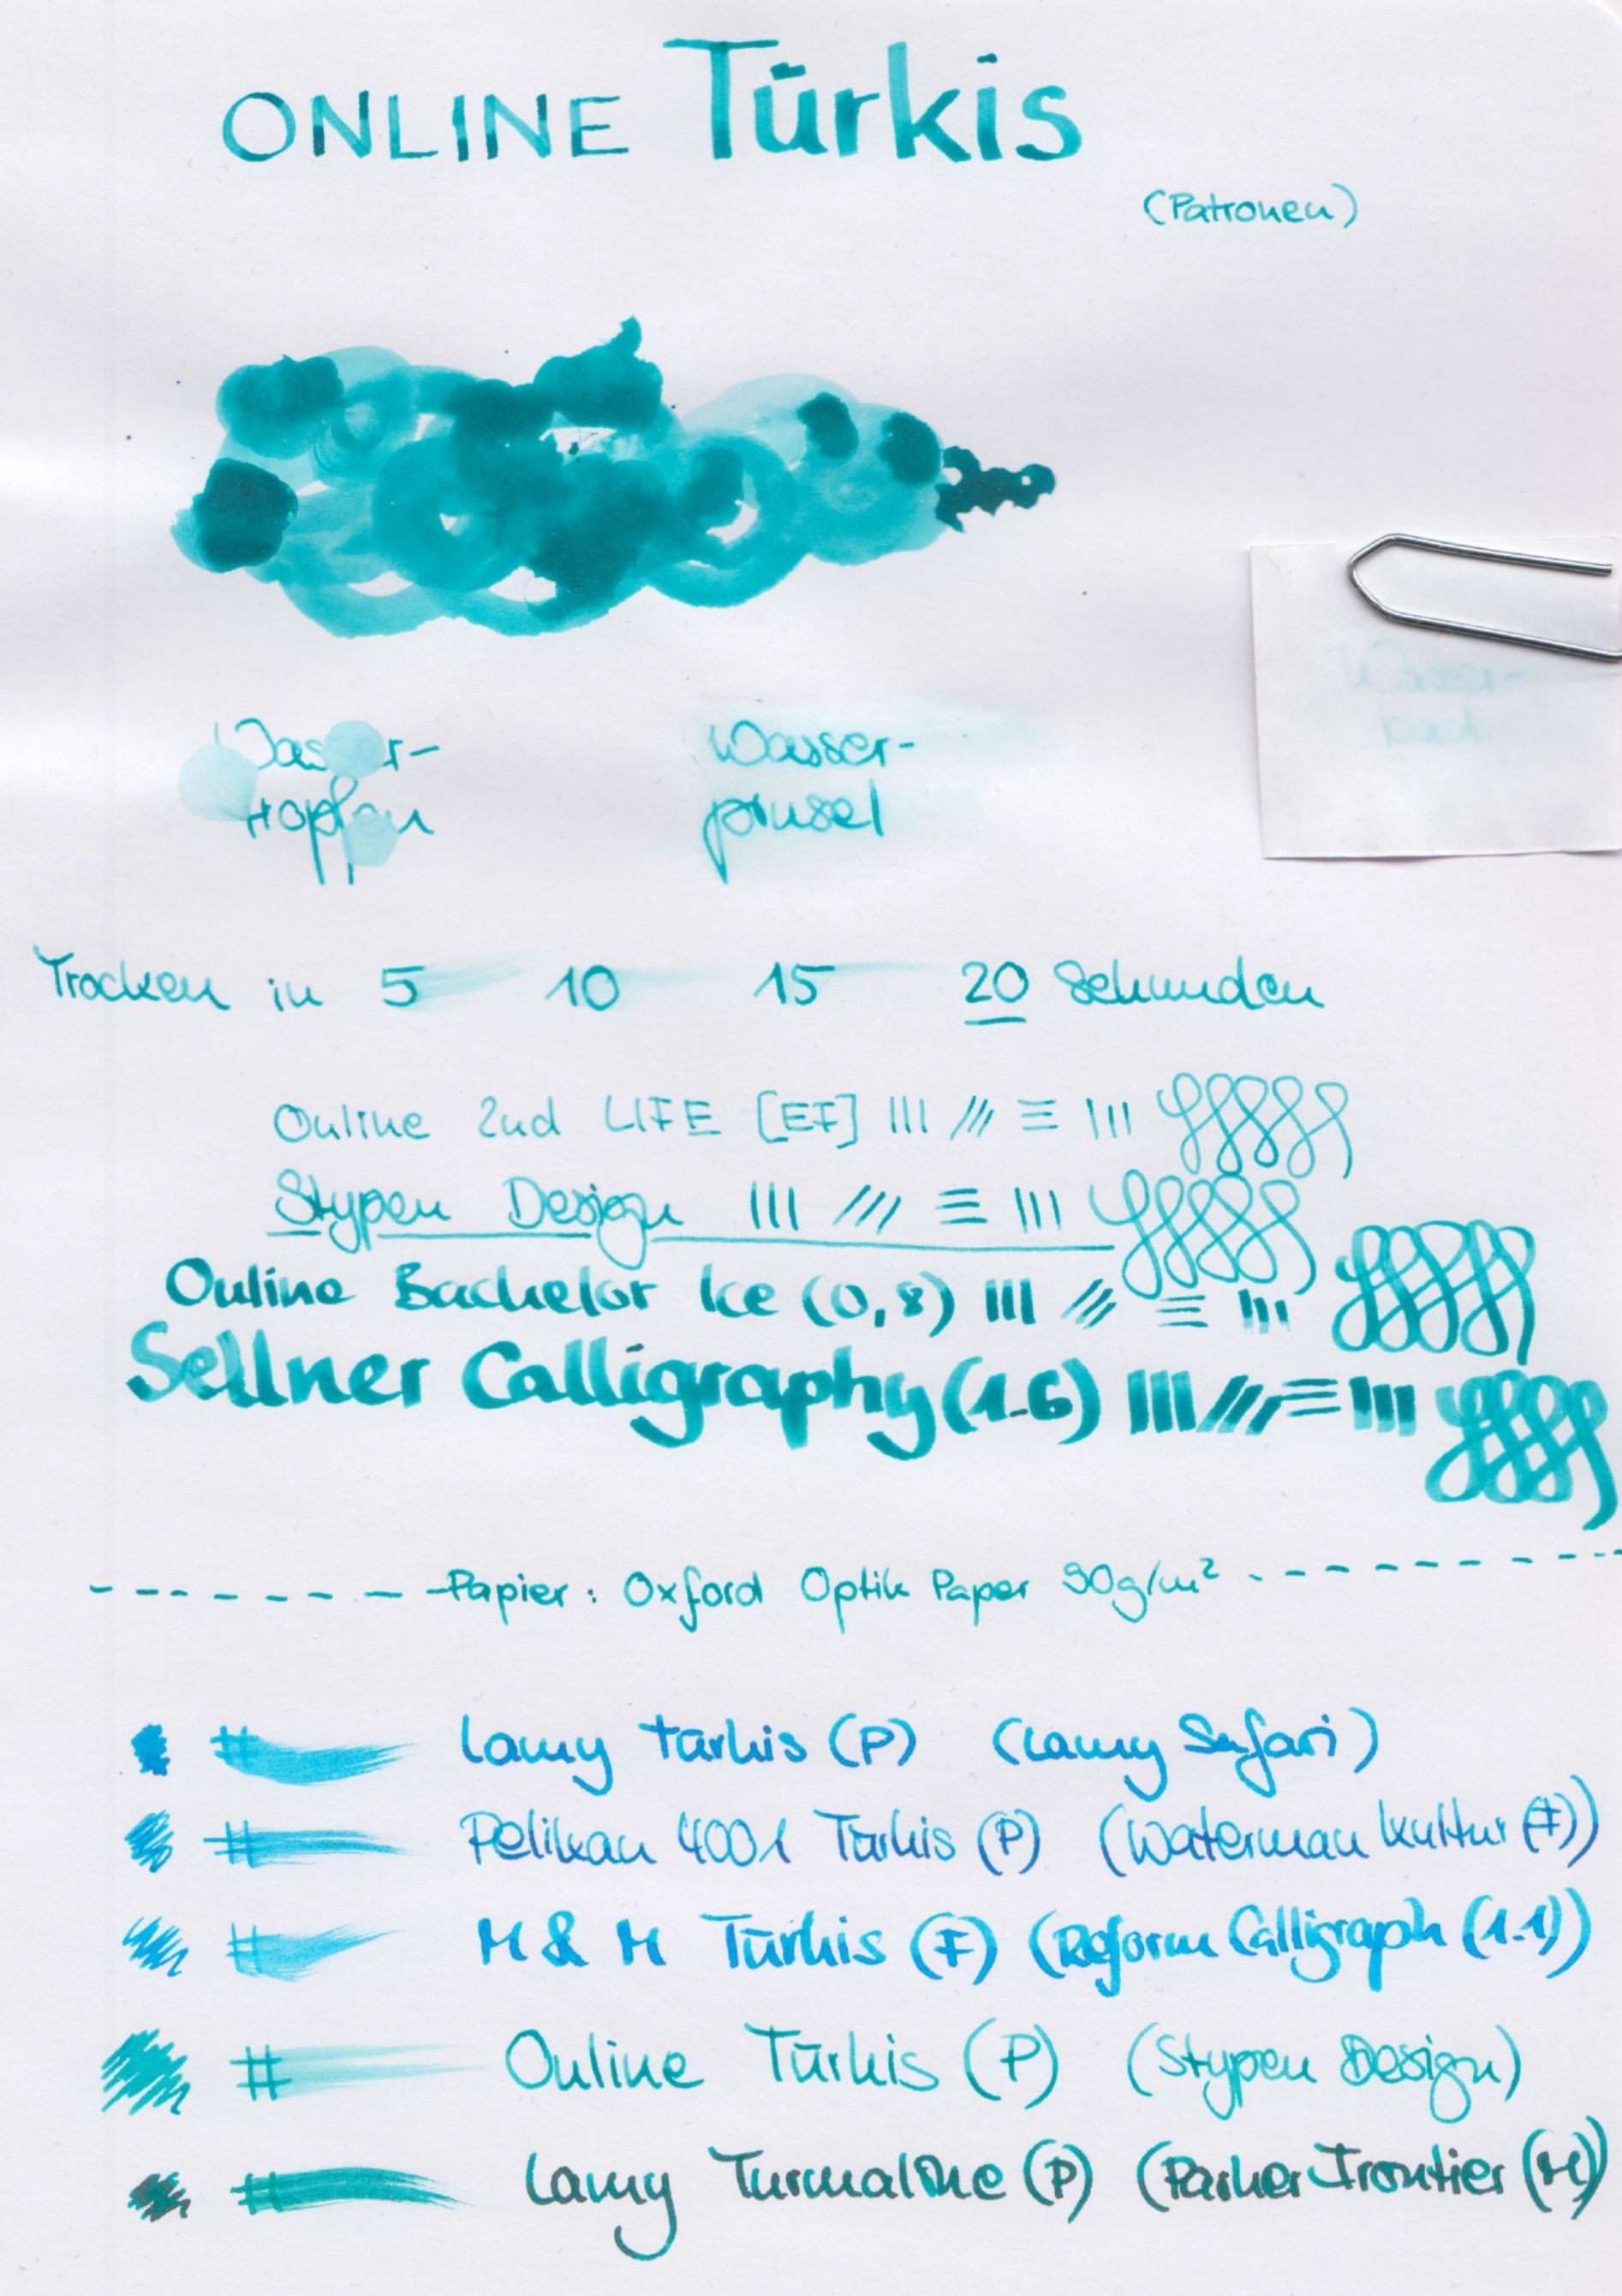 ONLINE Türkis
(Patronen)
Wasser-
tropfen
Wasser-
pinsel
Wasser-
bad
Trocken in 5 10 15 20 Sekunden
Online 2nd LIFE [EF]
Stypen Design
Online Bachelor Ice (0,8)
Sellner Calligraphy (1.6)
Papier: Oxford Optik Paper 90g/m²
Lamy türkis (P) (Lamy Safari)
Pelikan 4001 Türkis (P) (Waterman Kultur (F))
M & M Türkis (F) (Reform Calligraph (1.1))
Online Türkis (P) (Stypen Design)
Lamy Turmaline (P) (Parker Frontier (M))